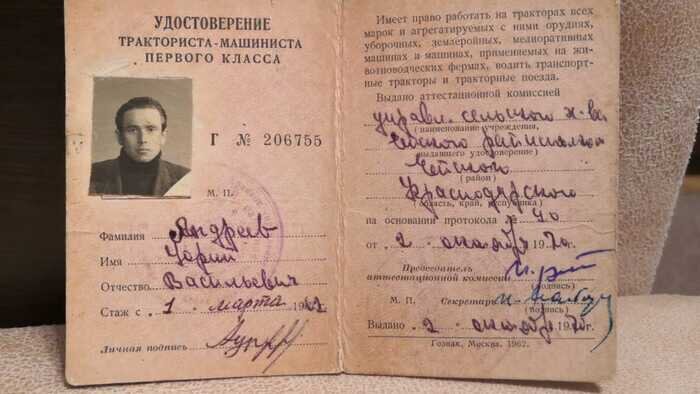 УДОСТОВЕРЕНИЕ
ТРАКТОРИСТА-МАШИНИСТА
ПЕРВОГО КЛАССА
Г № 206755
М. П.
Фамилия
Имя Юрий
Отчество Васильевич
Стаж с 1 марта 19
Личная подпись
Имеет право работать на тракторах всех
марок и агрегатируемых с ними орудиях,
уборочных, землеройных, мелиоративных
машинах и машинах, применяемых на жи-
вотноводческих фермах, водить транспорт-
ные тракторы и тракторные поезда.
Выдано аттестационной комиссией
управл. сельского х-ва
(наименование учреждения,
Ейского райисполкома
выдавшего удостоверение)
Ейского
(район)
Краснодарского
(область, край, республика)
на основании протокола № 40
от 2 октября 1970г.
Председатель
аттестационной комиссии
(подпись)
М. П. Секретарь
(подпись)
Выдано 2 октября 1970г.
Гознак. Москва. 1962.